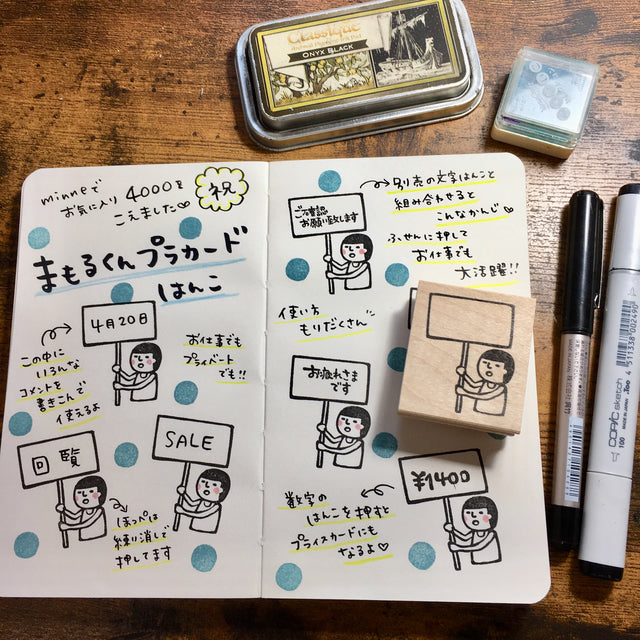 Classique
ONYX BLACK
minneで
お気に入り4000を
こえました♡
祝
まもるくんプラカード
はんこ
4月20日
この中に
いろんな
コメントを
書きこんで
使えるよ
お仕事でも
プライベート
でも!!
回覧
SALE
ほっぺは
練り消しで
押してます
ご確認
お願い致します
別売の文字はんこと
組み合わせると
こんなかんじ♡
ふせんに押して
お仕事でも
大活躍!!
使い方
もりだくさん
お疲れさま
です
¥1400
数字の
はんこを押すと
プライスカードにも
なるよ♡
COPIC sketch
MADE IN JAPAN
100